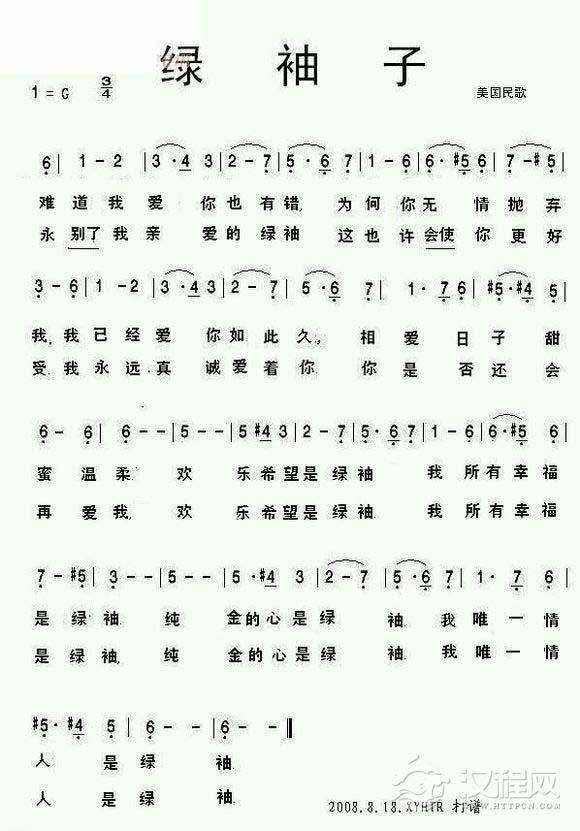 绿 袖 子
1 = G 3/4
美国民歌
6 | 1 - 2 | 3 · 4 3 | 2 - 7 | 5 · 6 7 | 1 - 1 | 6 · #5 6 |
难道我爱 你也有错, 为何你无 情抛弃
永别了我亲 爱的绿袖 这也许会使你更好
3 - 6 | 1 - 2 | 3 · 4 3 | 2 - 7 | 5 · 6 7 | 1 · 7 6 | #5 · #4 5 |
我,我已经爱 你如此久, 相爱日子甜
受,我永远真 诚爱着你 你是否还会
6 - 6 | 6 - - | 5 - - | 5 #4 3 | 2 - 7 | 5 · 6 7 | 1 - 6 | 6 · #5 6 |
蜜温柔.欢 乐希望是绿袖 我所有幸福
再爱我,欢 乐希望是绿袖 我所有幸福
7 - #5 | 3 - - | 5 - - | 5 · #4 3 | 2 - 7 | 5 · 6 7 | 1 · 7 6 |
是绿袖.纯 金的心是绿 袖.我唯一情
是绿袖,纯 金的心是绿 袖.我唯一情
#5 · #4 5 | 6 - - | 6 - ‖
人 是绿 袖.
人 是绿 袖.
2008.8.18.XYHTR 打谱
汉程网
WWW.HTTPCN.COM